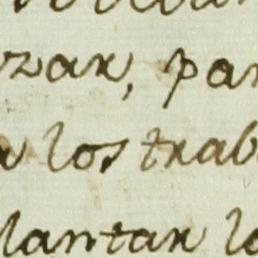 zar, par
los trab
lantar la